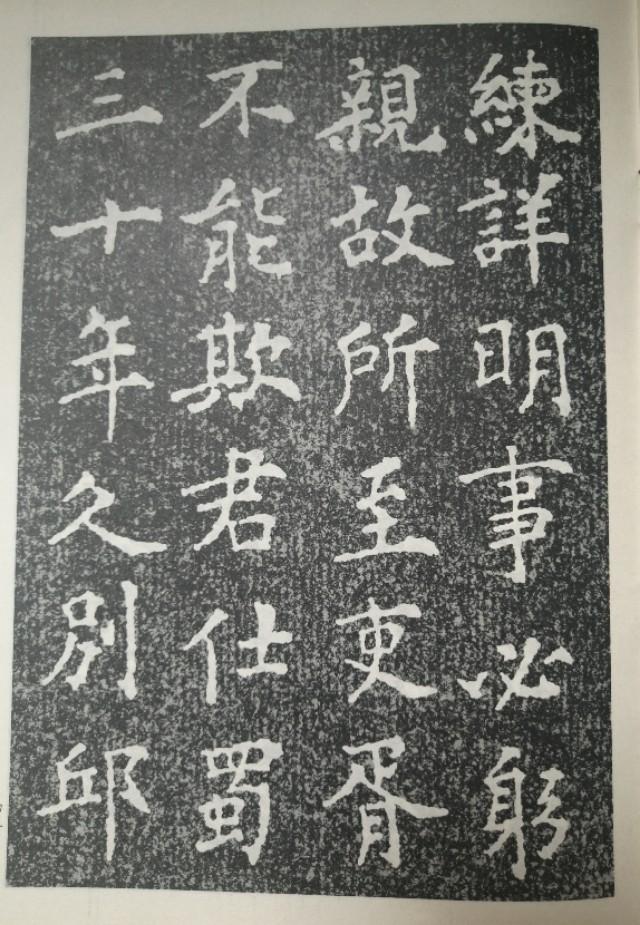 練詳明事必躬
親故所至吏胥
不能欺君仕蜀
三十年久別邱